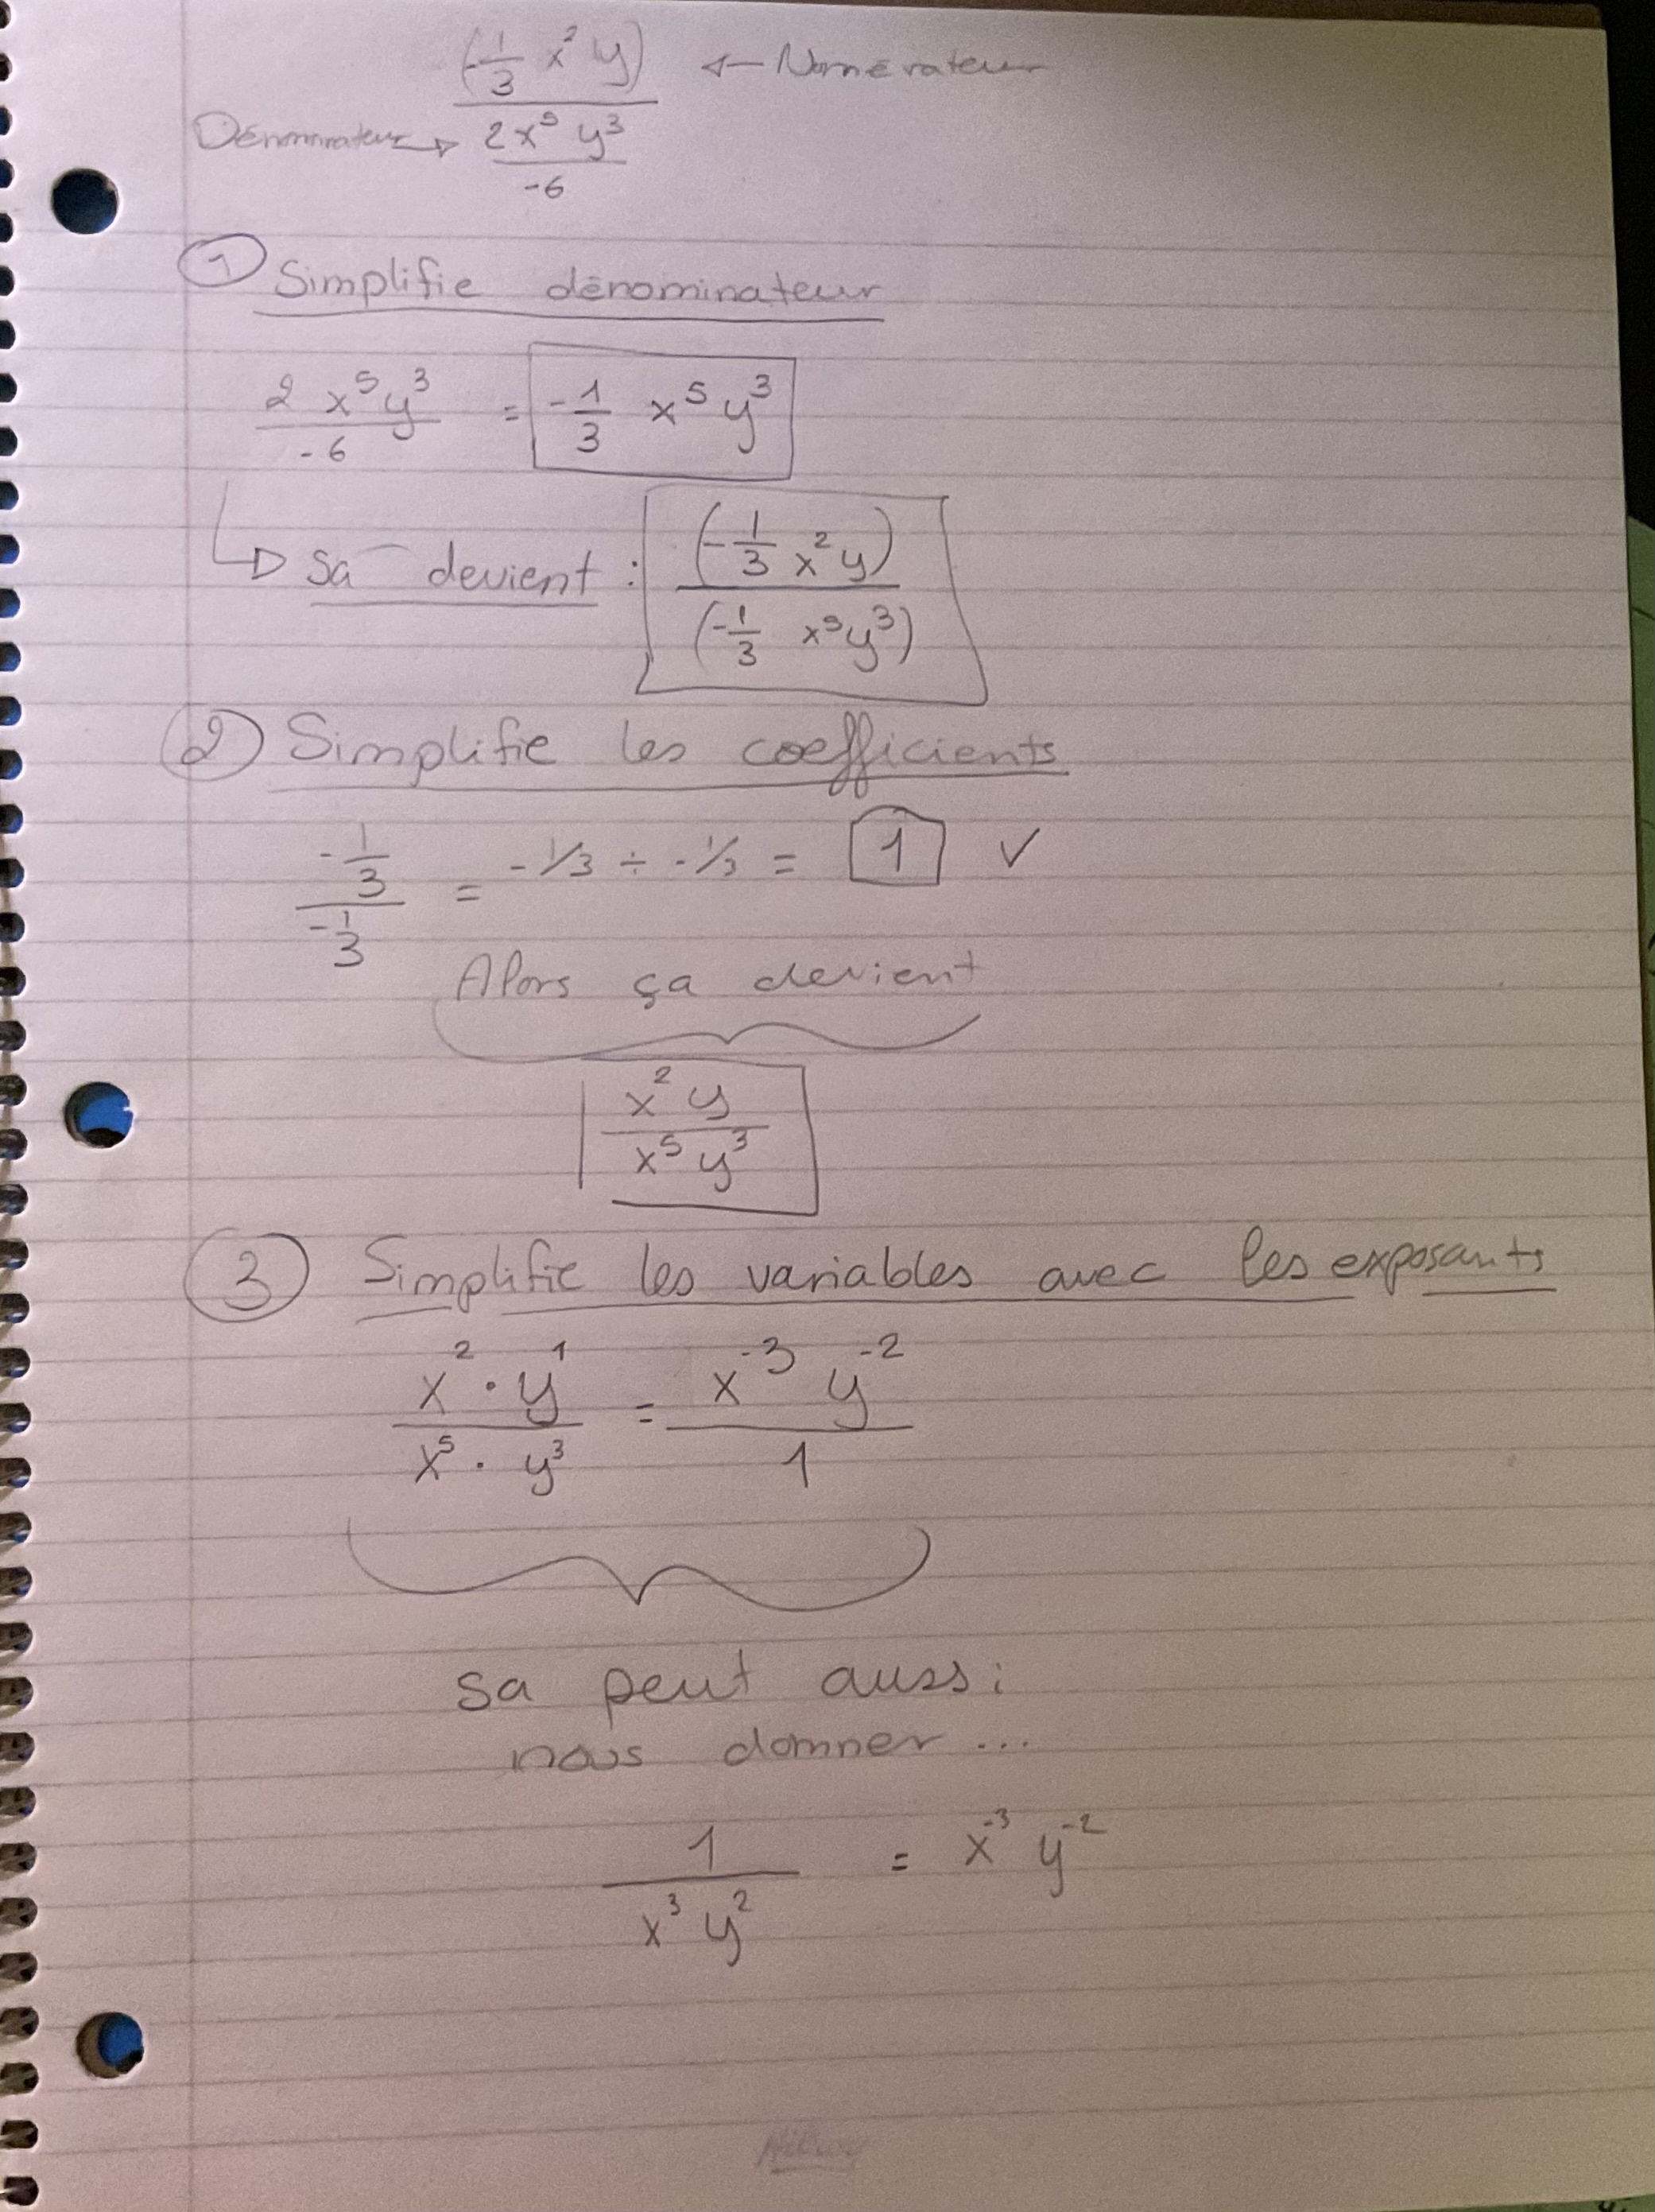 (-1/3 x² y) ← Numérateur
Dénominateur → 2x⁵ y³ / -6
① Simplifie dénominateur
2 x⁵ y³ / -6 = -1/3 x⁵ y³
↳ Sa devient : (-1/3 x² y) / (-1/3 x⁵ y³)
② Simplifie les coefficients
-1/3 / -1/3 = -1/3 ÷ -1/3 = 1 ✓
Alors ça devient
x² y / x⁵ y³
③ Simplifie les variables avec les exposants
x² · y¹ / x⁵ · y³ = x⁻³ y⁻² / 1
sa peut aussi
nous donner ...
1 / x³ y² = x⁻³ y⁻²
Hilroy